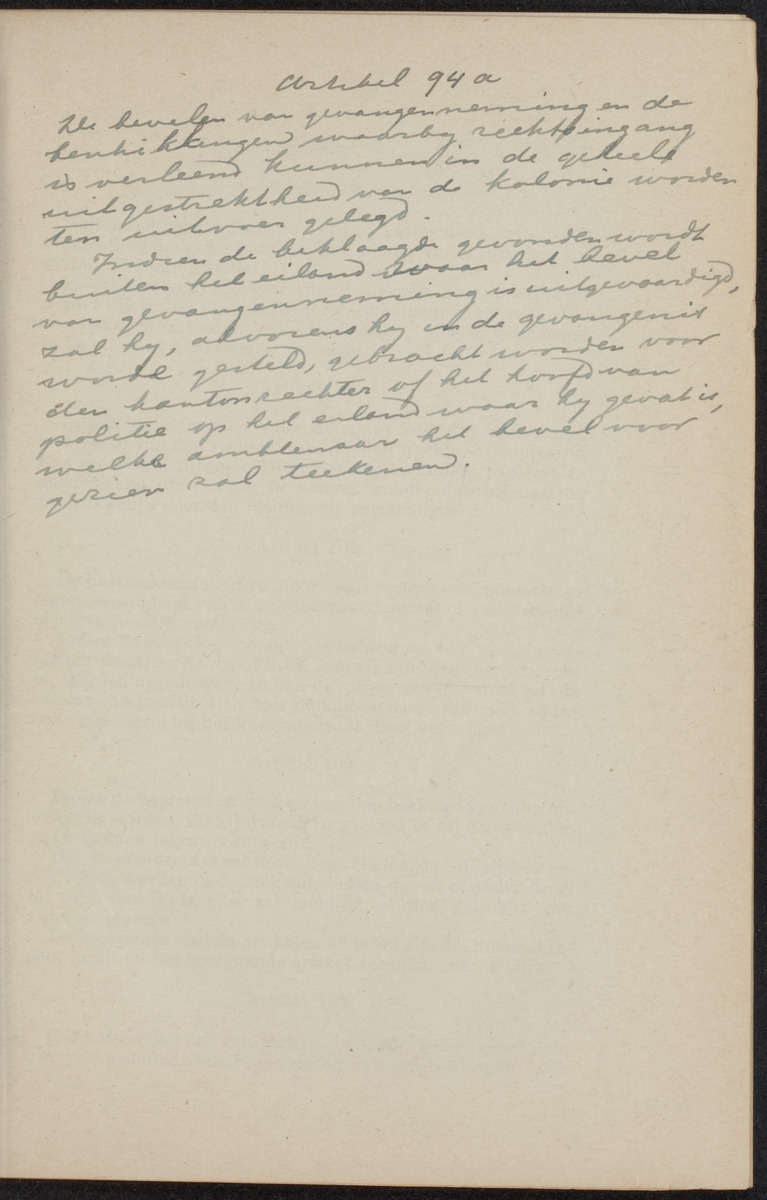 Artikel 94a
De bevelen van gevangenneming en de
beschikkingen waarby rechtsingang
is verleend kunnen in de geheele
uitgestrektheid van de kolonie worden
ten uitvoer gelegd.
Indien de beklaagde gevonden wordt
buiten het eiland waar het bevel
van gevangenneming is uitgevaardigd,
zal hy, alvorens hy in de gevangenis
worde gesteld, gebracht worden voor
den kantonrechter of het hoofd van
politie op het eiland waar hy gevat is,
welke ambtenaar het bevel voor
gezien zal teekenen.